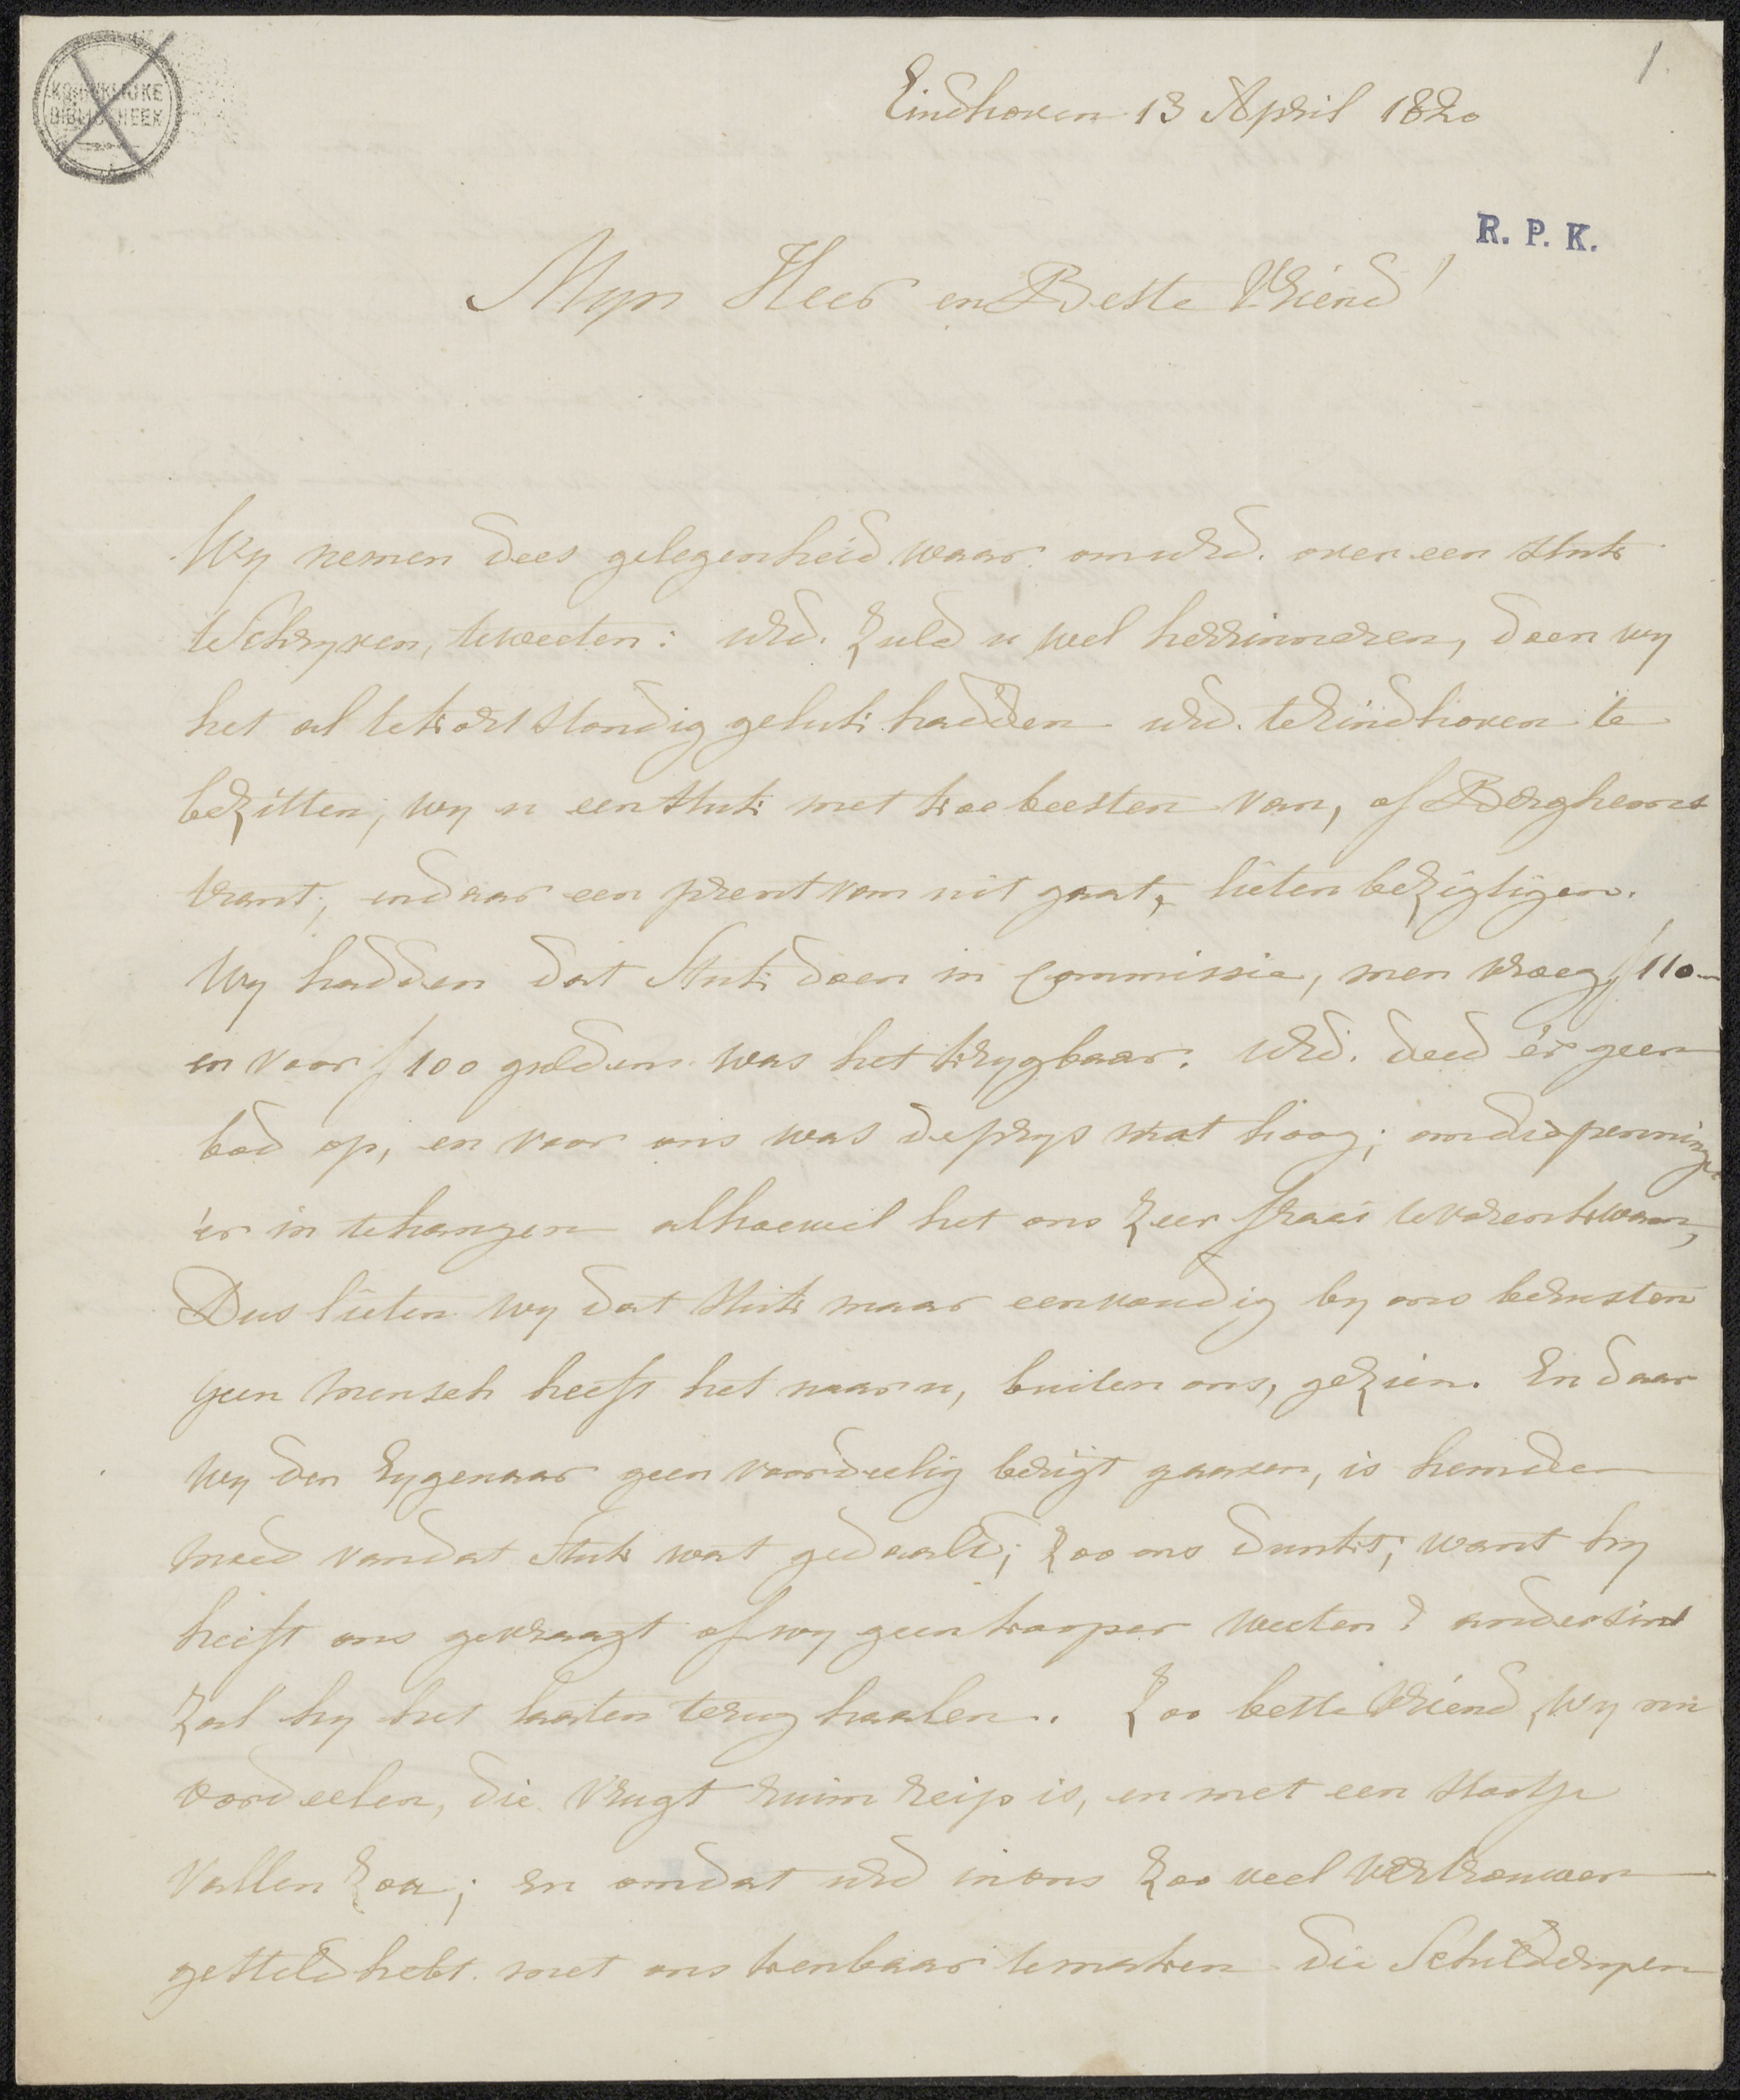 1
KONINKLIJKE
BIBLIOTHEEK
Eindhoven 13 April 1820
R. P. K.
Myn Heer en Beste Vriend!
Wy nemen dees gelegenheid waar om uEd. over een stuk
te Schryven, te weeten: uEd. zuld u wel herrinneren, doen wy
het al te kortstondig geluk hadden uEd. te Eindhoven te
bezitten, wy u een stuk met koebeesten van, of Berghems
trant, en daar een prent van uit gaat, lieten bezigtigen.
Wy hadden dat Stuk doen in Commissie, men vroeg f 110-
en voor f 100 guldens was het krygbaar. uEd. deed ér geen
bod op, en voor ons was de prys wat hoog; om die penninge
ér in te hangen alhoewel het ons zeer fraai te vooren kwam,
Dus lieten wy dat stuk maar eenvoudig by ons berusten
geen mensch heeft het naar u, buiten ons, gezien. En daar
wy den Eygenaar geen voordeelig berigt gaaven, is hem den
moed van dat Stuk wat gedaald; zoo ons dunkt; want hy
heeft ons gevraagt of wy geen kooper weeten? andersins
zal hy het laaten terug haalen. Zoo beste Vriend, wy nu
oordeelen, die vrugt ruim reip is, en met een stootje
vallen zou; en omdat uEd in ons zoo veel vertrouwen
gesteld hebt. met ons kenbaar te maken die Schilderyen